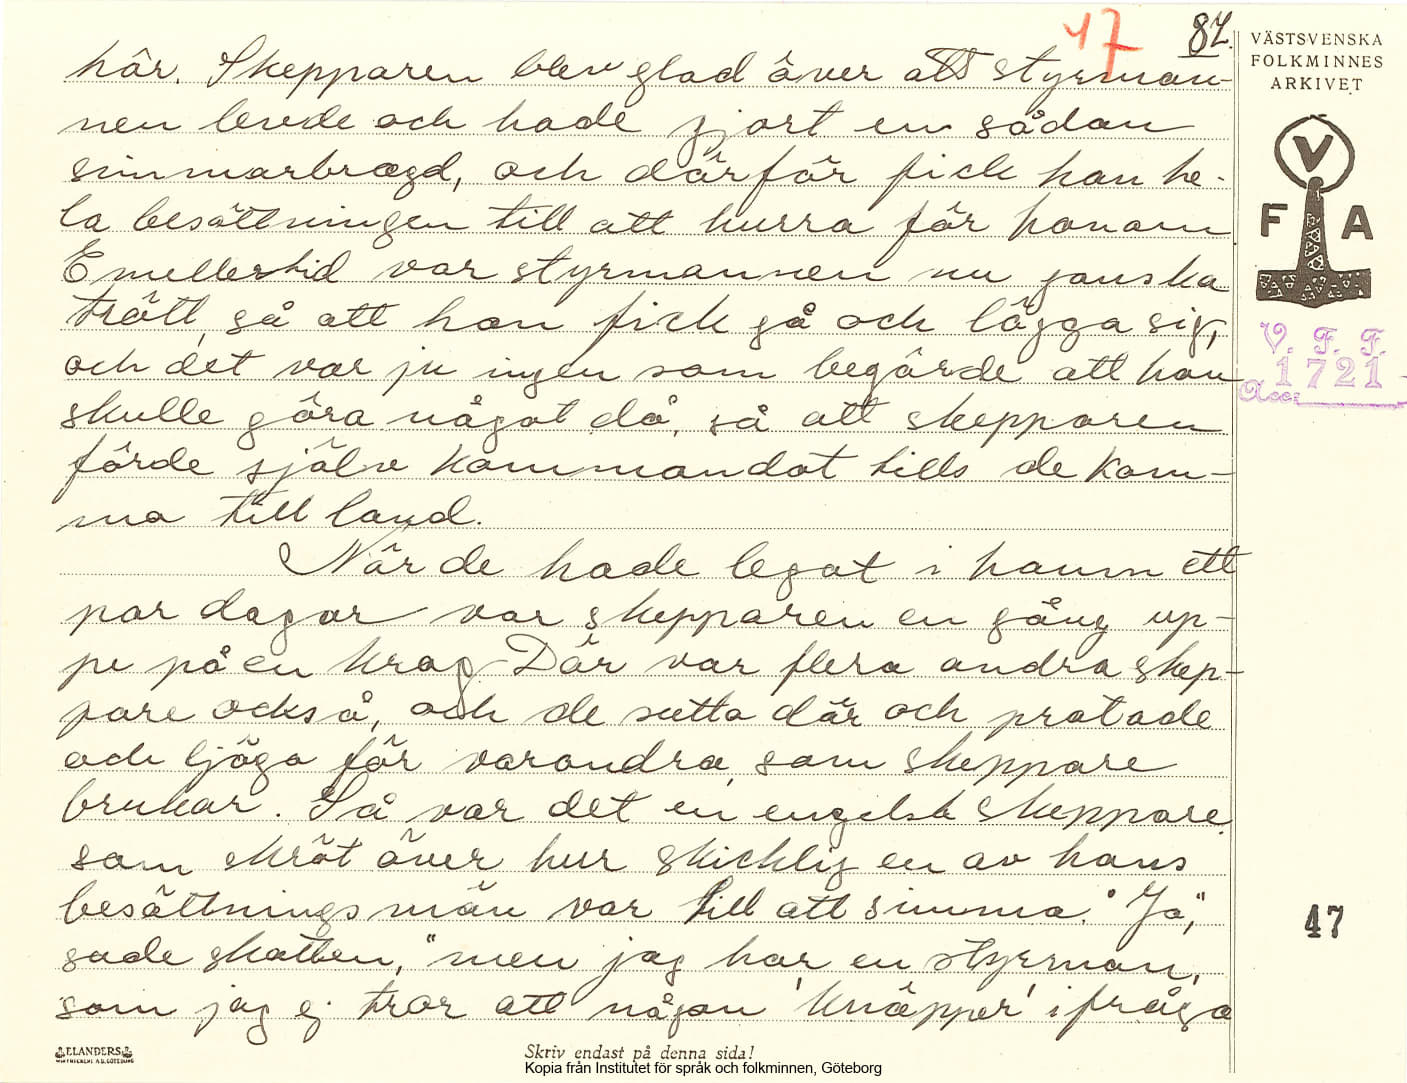 47
82.
VÄSTSVENSKA
FOLKMINNES
ARKIVET
V
F A
V. F. F.
Acc. 1721
här. Skepparen blev glad över att styrman-
nen levde och hade gjort en sådan
simmarbragd, och därför fick han he-
la besättningen till att hurra för honom.
Emellertid var styrmannen nu ganska
trött, så att han fick gå och lägga sig,
och det var ju ingen som begärde att han
skulle göra något då, så att skepparen
förde själv kommandot tills de kom-
ma till land.
När de hade legat i hamn ett
par dagar var skepparen en gång up-
pe på en krog. Där var flera andra skep-
pare också, och de sutto där och pratade
och ljögo för varandra, som skeppare
brukar. Så var det en engelsk skeppare
som skröt över hur skicklig en av hans
besättningsmän var till att simma. "Ja,"
sade skotten, "men jag har en styrman,
som jag ej tror att någon 'knäpper' ifråga
47
ELANDERS
Skriv endast på denna sida!
Kopia från Institutet för språk och folkminnen, Göteborg